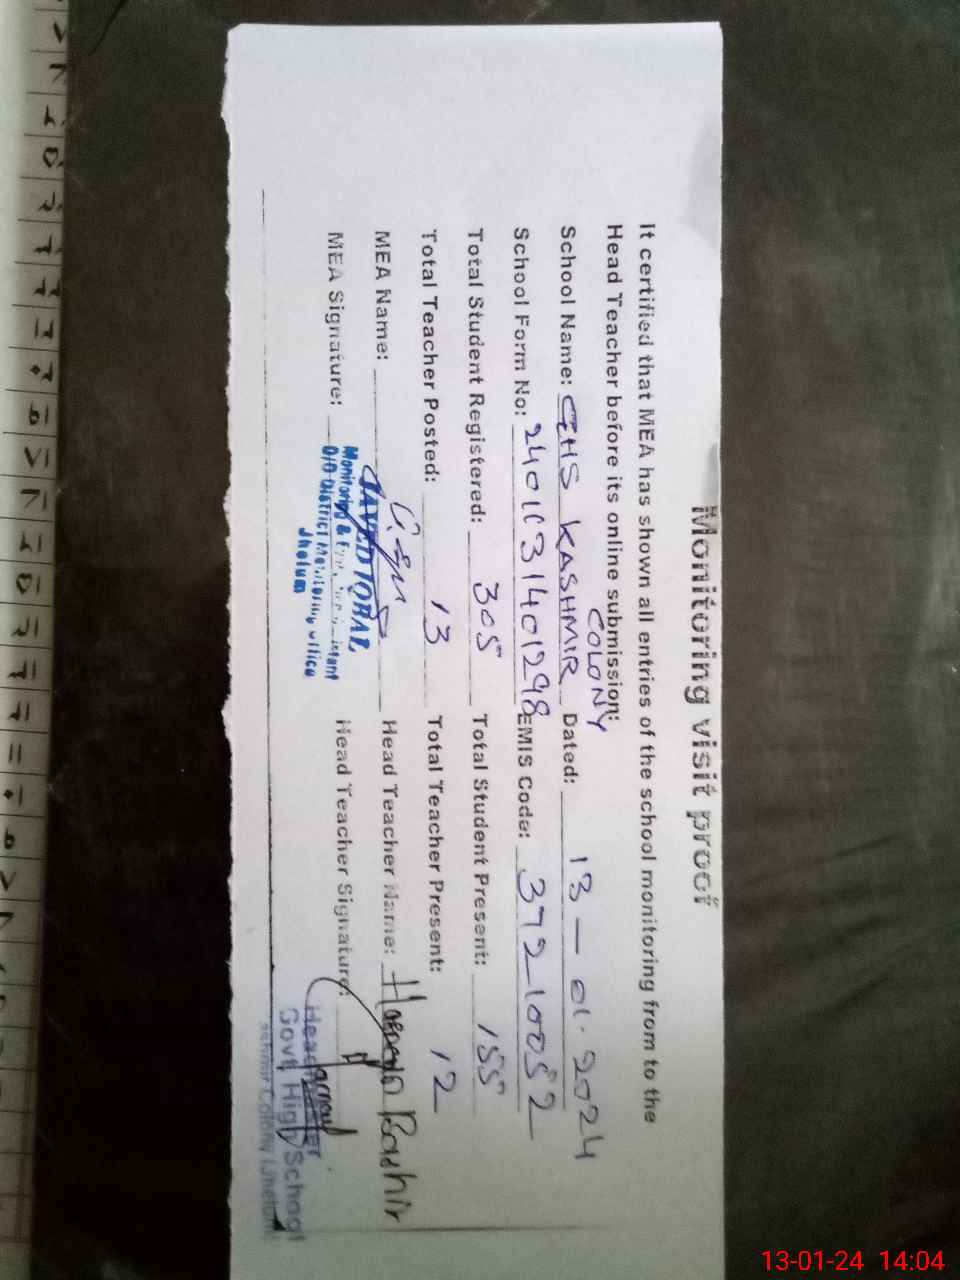 Monitoring visit proof
It certified that MEA has shown all entries of the school monitoring from to the
Head Teacher before its online submission:
School Name: GHS KASHMIR COLONY Dated: 13-01-2024
School Form No: EMIS Code: 37210052
Total Student Registered: 305 Total Student Present: 155
Total Teacher Posted: 13 Total Teacher Present: 12
MEA Name: JAVED IQBAL Head Teacher Name: Bashir
Monitoring &
MEA Signature: O/O District Monitoring Office Head Teacher Signature:
Jhelum
Head Master
Govt High School
Kashmir Colony (Jhelum)
13-01-24 14:04